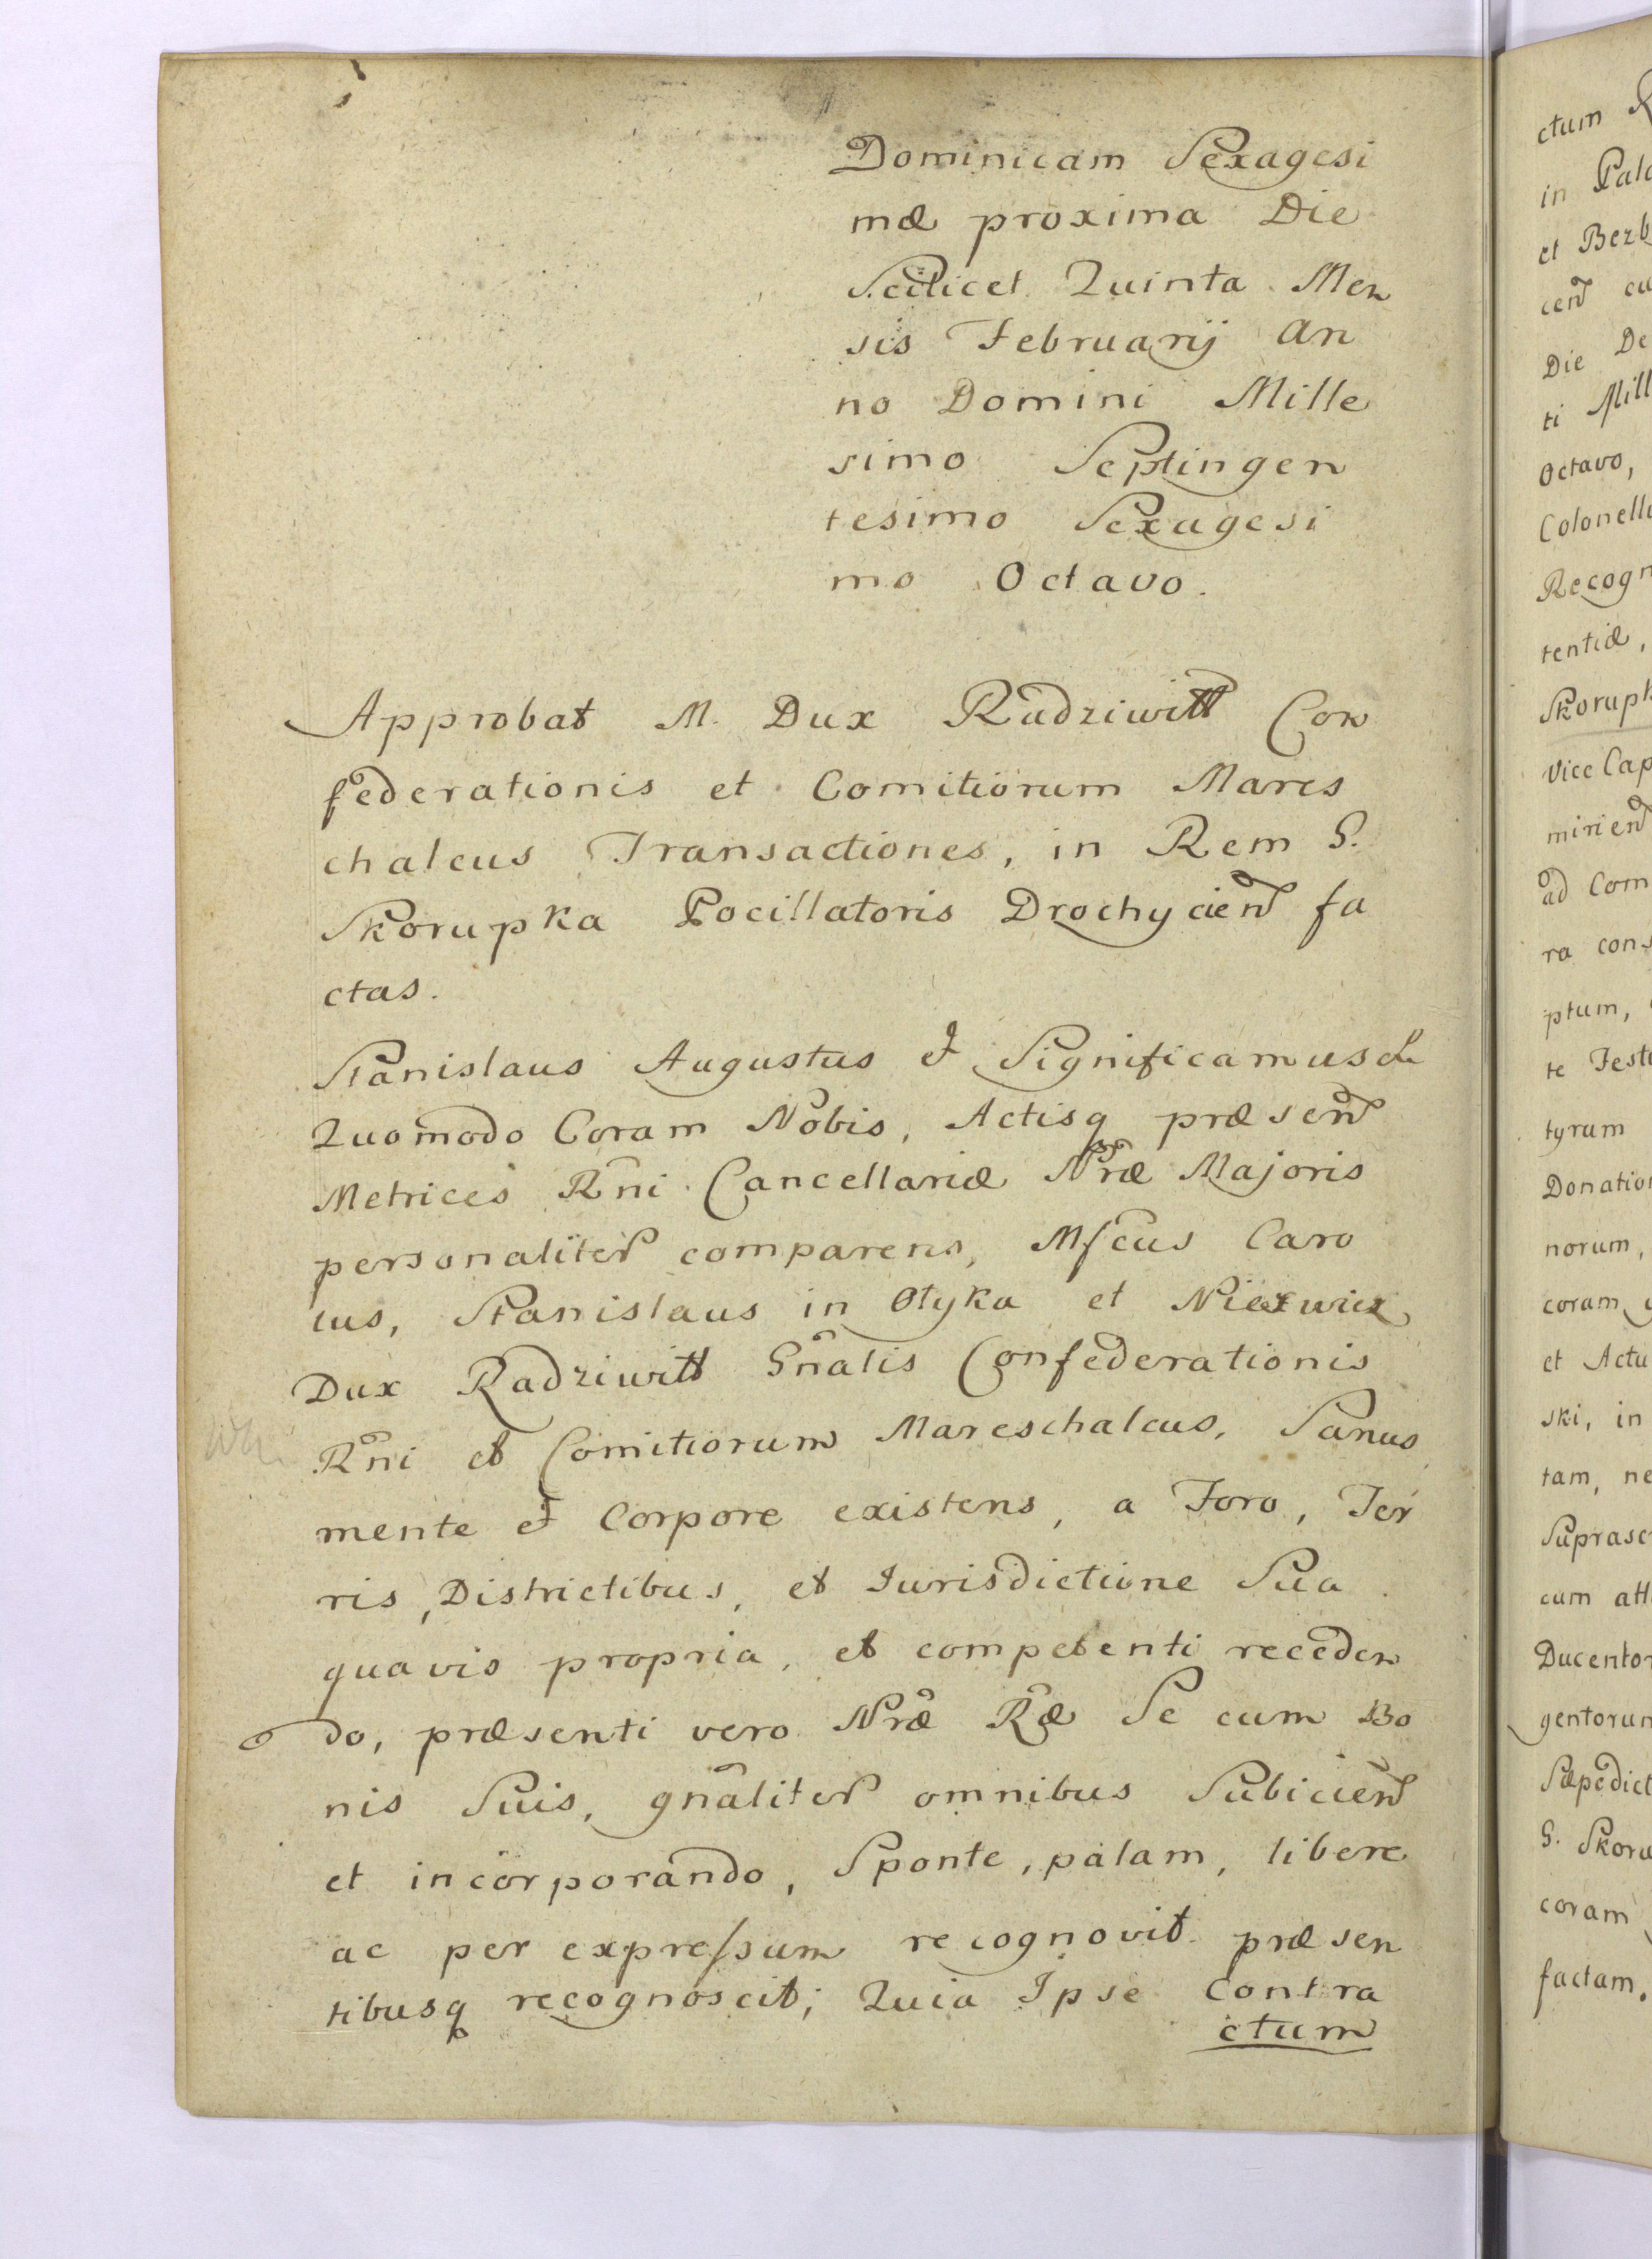 Dominicam Sexagesi
mæ proxima Die
Scilicet Quinta Men
sis Februarij An
no Domini Mille
simo Septingen
tesimo Sexagesi
mo Octavo.
Approbat M. Dux Radziwiłł Con
federationis et Comitiorum Mares
chalcus Transactiones, in Rem G.
Skorupka Pocillatoris Drohycień fa
ctas.
Stanislaus Augustus et Significamus
Quomodo Coram Nobis, Actisq præsen
Metrices Rñi Cancellariæ Nræ Majoris
personaliter comparens, Mfcus Caro
lus, Stanislaus in Ołyka et Nieswiez
Dux Radziwiłł Gñalis Confederationis
Rñi et Comitiorum Mareschalcus, Sanus
mente et Corpore existens, a Foro, Ter
ris, Districtibus, et Jurisdictione Sua
quavis propria, et competenti receden
do, præsenti vero Nræ Ræ Se cum Bo
nis Suis, gñaliter omnibus Subicień
et incorporando, Sponte, palam, libere
ac per expreſsum recognovit præsen
tibusq recognoscit; Quia Ipse Contra
ctum
ctum
in
et
Die De
ti Mill
Octavo,
Recogn
tentiæ,
Skorupk
Vice Cap
ad Com
ra cons
ptum,
te Test
tyrum
Donation
norum,
coram
et Actu
ski, in
tam, ne
Suprasc
cum att
Ducentor
gentorum
Sæpedict
G. Skoru
coram
factam.